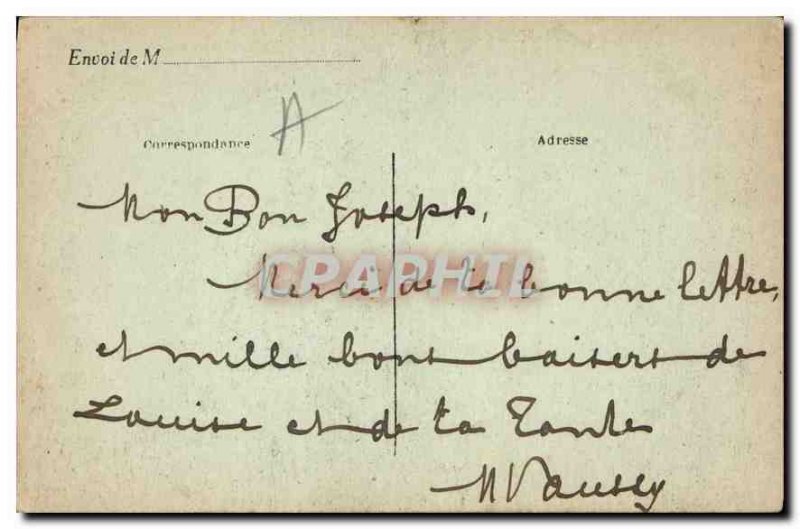 Envoi de M
A
Correspondance
Adresse
Mon Bon Joseph,
Merci de ta bonne lettre,
et mille bons baisers de
Louise et de ta Tante
CPARAMA